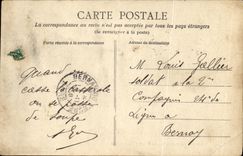 CARTE POSTALE
La correspondance au recto n'est pas acceptée par tous les pays étrangers
(Se renseigner à la poste)
Partie réservée à la correspondance
Adresse du destinataire
Quand on
casse la casserole
on se passe
de soupe
BERN
M. Louis
soldat à la 2e
Compagnie
Ligne à
Bernay